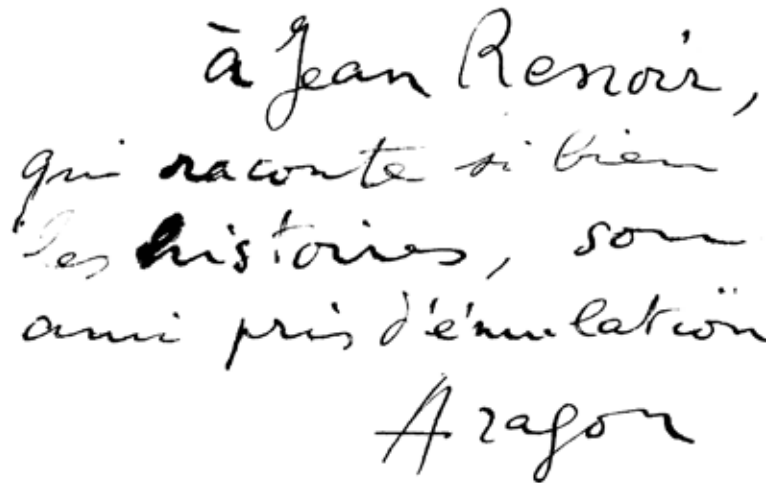 à Jean Renoir,
qui raconte si bien
les histoires, son
ami pris d'émulation
Aragon